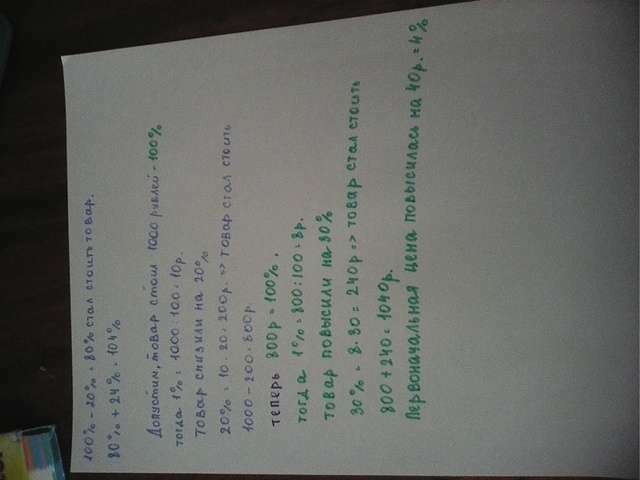 100% - 20% = 80% стал стоить товар.
80% + 24% = 104%
Допустим, товар стоил 1000 рублей - 100%
тогда 1% = 1000 : 100 = 10р.
Товар снизили на 20%
20% = 10 · 20 = 200р. => товар стал стоить
1000 - 200 = 800р.
теперь 800р = 100%.
тогда 1% = 800 : 100 = 8р.
товар повысили на 30%
30% = 8 · 30 = 240р => товар стал стоить
800 + 240 = 1040р.
Первоначальная цена повысилась на 40р. = 4%